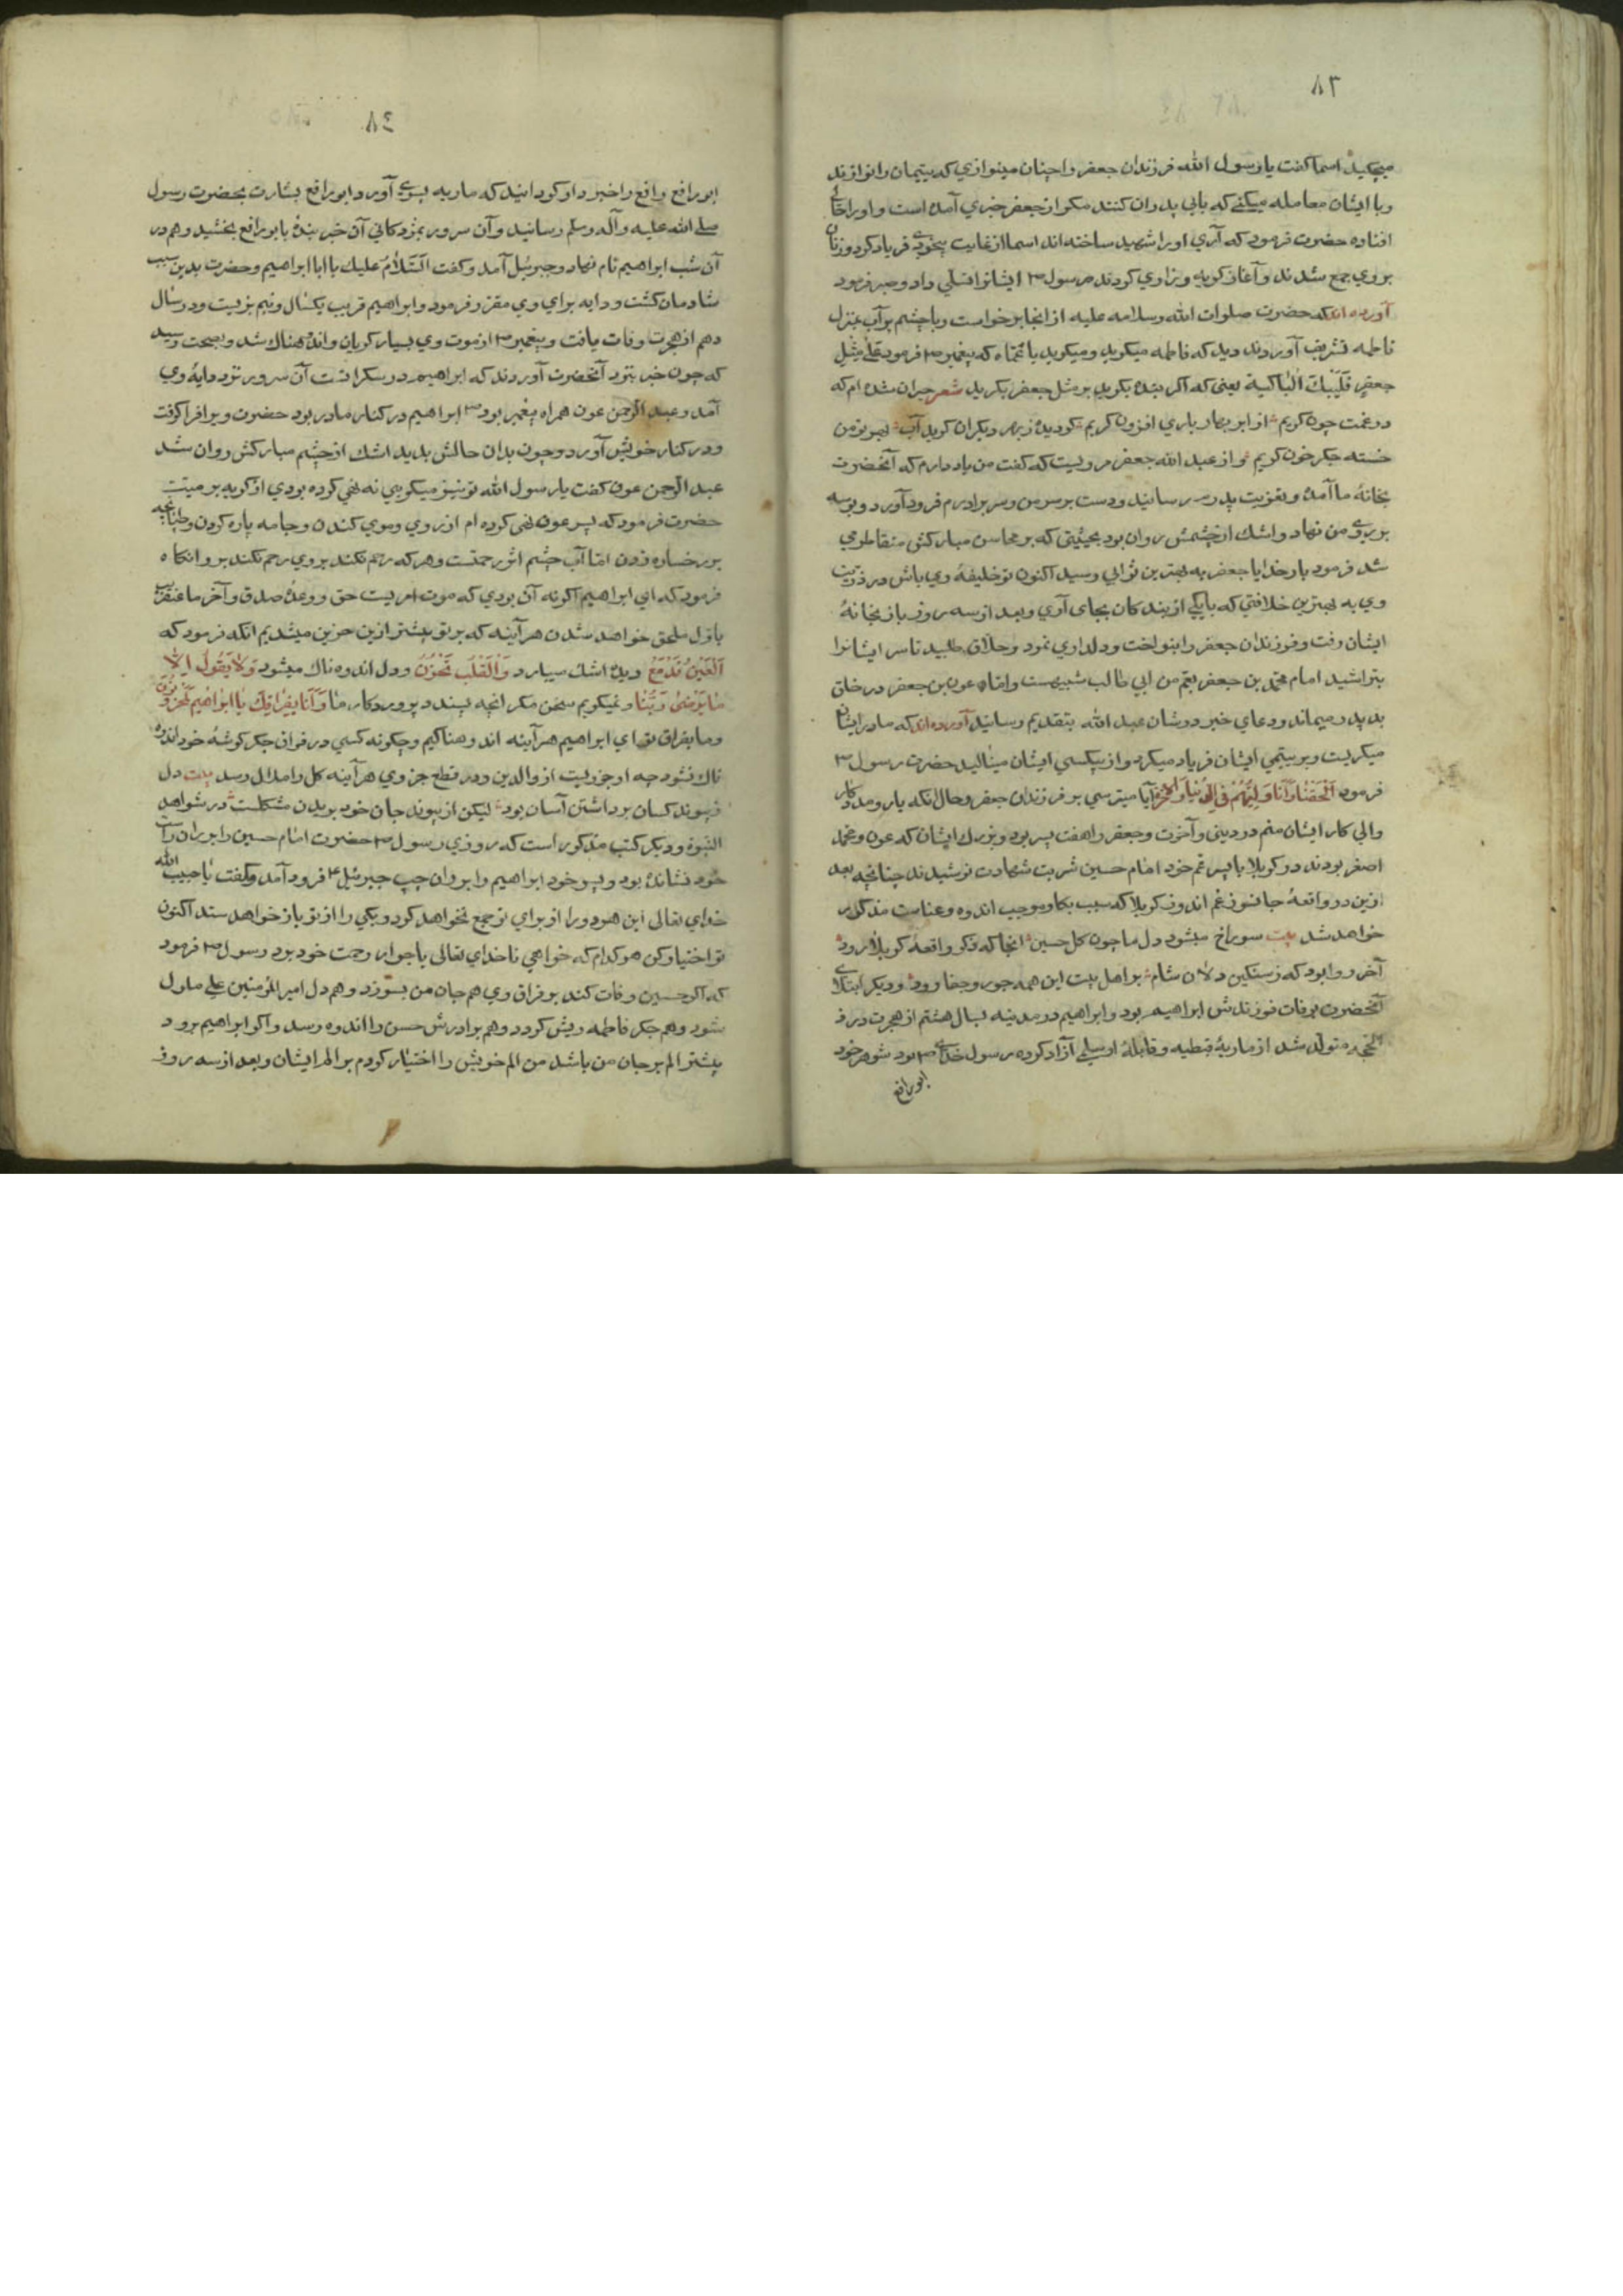 ٨٣
میچکید اسما گفت یا رسول الله فرزندان جعفر را چنان مینوازی که یتیمان را نوازند
و با ایشان معامله میکنی که بابی پدران کنند مگر از جعفر خبری آمده است و او را حالی
افتاده حضرت فرمود که آری او را شهید ساخته اند اسما از غایت بیخودی فریاد کرد و زنان
بروی جمع شدند و آغاز کریه و زاری کردند رسول ص ایشانرا تسلی داد و صبر فرمود
آورده اند که حضرت صلوات الله وسلامه علیه از انجا برخواست و با چشم پر آب بمنزل
فاطمه تشریف آوردند دید که فاطمه میکرید و میکوید یا عماه که پیغمبر ص فرمود علی مثل
جعفر فلیبک الباکیة یعنی که اکر بنده بکرید بر مثل جعفر بکرید شعر حیران شده ام که
در غمت چون کریم از ابر بهار باری افزون کریم کردیده ز بهر دیکران کرید آب بهر تو من
خسته جکر خون کریم و از عبد الله جعفر مرویست که گفت من یاد دارم که آنحضرت
بخانهٔ ما آمده و تعزیت پدرم رسانید و دست بر سر من و سر برادرم فرود آورد و بوسه
بر روی من نهاد و اشک از چشمش روان بود بحیثیتی که بر محاسن مبارکش متقاطر می
شد فرمود بار خدایا جعفر به بهترین ثوابی رسید اکنون تو خلیفهٔ وی باش در ذریت
وی به بهترین خلافتی که با یکی از بندکان بجای آری و بعد از سه روز باز بخانهٔ
ایشان رفت و فرزندان جعفر را بنواخت و دلداری نمود و حلاق طلبید تا سر ایشانرا
بتراشید اما محمد بن جعفر بعم من ابی طالب شبیهست و اما عون بن جعفر در خلق
بدیدر میماند و دعای خیر در شان عبد الله بتقدیم رسانید آورده اند که مادر ایشان
میکریست و بر یتیمی ایشان فریاد میکرد و از بیکسی ایشان مینالید حضرت رسول ص
فرمود و انا ولیهم فی الدنیا و الاخرة آیا میترسی بر فرزندان جعفر و حال آنکه یار و مددکار
و والی کار ایشان منم در دینی و آخرت و جعفر را هفت پسر بود و بزرک ایشان که عون و محمد
اصغر بودند در کربلا با پسر عم خود امام حسین شربت شهادت نوشیدند چنانچه بعد
ازین در واقعهٔ جانسوز غم اندوز کربلا که سبب بکا و موجب اندوه و عناست مذکور
خواهد شد بیت سوراخ میشود دل ما چون کل حسین انجا که ذکر واقعهٔ کربلا رود
آخر روا بود که ز سنکین دلان شام بر اهل بیت این همه جور و جفا رود و دیکر ابتلای
آنحضرت بوفات فرزندش ابراهیم بود و ابراهیم در مدینه بسال هشتم از هجرت در ذ
الحجه متولد شد از ماریهٔ قبطیه و قابلهٔ او سلمی آزاد کرده رسول خدای ص بود شوهر خود
ابو رافع
٨٤
ابو رافع رافع را خبردار کردانید که ماریه پسری آورد ابو رافع بشارت بحضرت رسول
صلی الله علیه وآله وسلم رسانید و آن سرور بمژدکانی آن خبر بندهٔ بابو رافع بخشید و هم در
آن شب ابراهیم نام نهاد و جبرئیل آمد و کفت السلام علیک یا ابا ابراهیم و حضرت بدین سبب
شادمان کشت و دایه برای وی مقرر فرمود و ابراهیم قریب یکسال و نیم بزیست و در سال
دهم از هجرت وفات یافت و پیغمبر ص از موت وی بسیار کریان و اندوهناک شد و بصحت رسید
که چون خبر بنزد آنحضرت آوردند که ابراهیم در سکراتست آن سرور نزد دایهٔ وی
آمد و عبد الرحمن عون همراه پیغمبر بود ص ابراهیم در کنار مادر بود حضرت ویرا فرا کرفت
و در کنار خویش آورد و چون بدان حالش بدید اشک از چشم مبارکش روان شد
عبد الرحمن عون کفت یا رسول الله تو نیز میکریی نه نهی کرده بودی از کریه بر میت
حضرت فرمود که پسر عون نهی کرده ام از روی و موی کندن و جامه پاره کردن و طپانچه
بر رخساره زدن اما آب چشم اثر رحمتست و هر که رحم نکند بروی رحم نکند بر و انکاه
فرمود که ای ابراهیم اکر نه آن بودی که موت امریست حق و وعدهٔ صدق و آخر ما عنقریب
باول ملحق خواهد شدن هر آینه که بر تو بیشتر ازین حزین میشدیم انکه فرمود که
العین تدمع دیده اشک میبارد والقلب تحزن و دل اندوه ناک میشود ولا یقول الا
ما یرضی ربنا و نمیکویم سخن مکر انچه پسندد پروردکار ما و انا بفراقک یا ابراهیم لمحزونون
و ما بفراق تو ای ابراهیم هر آینه اندوهناکیم و چکونه کسی در فراق جکر کوشهٔ خود اندوه
ناک نشود چه او جزویست از والدین و در قطع جزوی هر آینه کل را ملال رسد بیت دل
ز پیوند کسان برداشتن آسان بود لیکن از پیوند جان خود بریدن مشکلست در شواهد
النبوة و دیکر کتب مذکور است که روزی رسول ص حضرت امام حسین را بر ران راست
خود نشانده بود و پسر خود ابراهیم را بر ران چپ جبرئیل ع فرود آمد و کفت یا حبیب الله
خدای تعالی این هر دو را از برای تو جمع نخواهد کرد و یکی را از تو باز خواهد ستد اکنون
تو اختیار کن هر کدام که خواهی تا خدای تعالی با جوار رحمت خود برد رسول ص فرمود
که اکر حسین وفات کند بر فراق وی هم جان من بسوزد و هم دل امیر المؤمنین علی ملول
شود و هم جکر فاطمه ریش کردد و هم برادرش حسن را اندوه رسد و اکر ابراهیم برود
بیشتر الم بر جان من باشد من الم خویش را اختیار کردم بر الم ایشان و بعد از سه روز